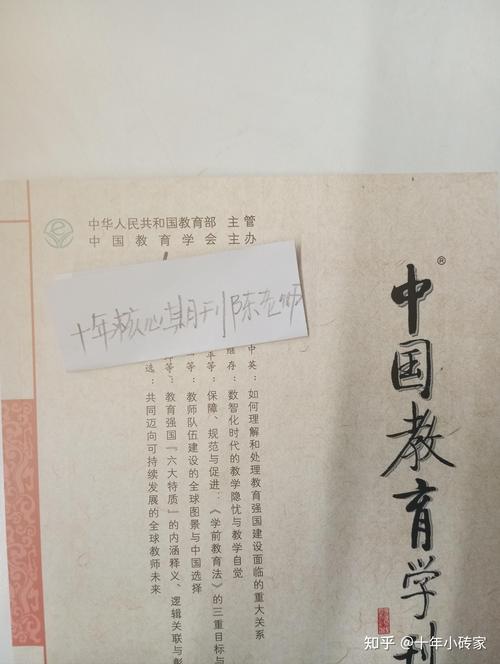 中华人民共和国教育部 主管
中国教育学会 主办
十年核心期刊陈老师
®
中国教育学刊
中英：如何理解和处理教育强国建设面临的重大关系
继存：数智化时代的教学隐忧与教学自觉
平等：保障、规范与促进：《学前教育法》的三重目标与
等：教师队伍建设的全球图景与中国选择
等：教育强国“六大特质”的内涵释义、逻辑关联与
选：共同迈向可持续发展的全球教师未来
知乎 @十年小砖家